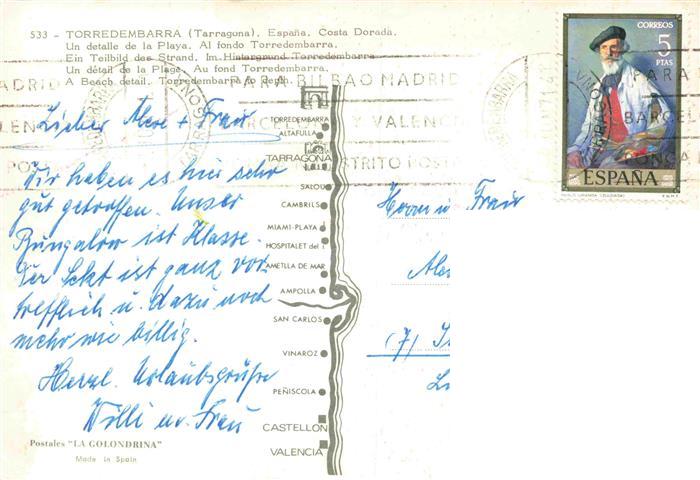 533 - TORREDEMBARRA (Tarragona). España. Costa Dorada.
Un detalle de la Playa. Al fondo Torredembarra.
Ein Teilbild des Strand. Im Hintergrund Torredembarra
Un détail de la Plage. Au fond Torredembarra.
A Beach detail. Torredembarra to depth.
Lieber + Frau
Wir haben es hier sehr
gut getroffen. Unser
Bungalow ist Klasse.
Der Sekt ist ganz vor-
trefflich u. dazu noch
mehr wie billig.
Herzl. Urlaubsgrüße
Willi u. Frau
Postales "LA GOLONDRINA"
Made in Spain
TORREDEMBARRA
ALTAFULLA
TARRAGONA
SALOU
CAMBRILS
MIAMI-PLAYA
HOSPITALET del I.
AMETLLA DE MAR
AMPOLLA
SAN CARLOS
VINAROZ
PEÑISCOLA
CASTELLON
VALENCIA
PARA BILBAO MADRID
BARCELONA Y VALENCIA
DISTRITO POSTAL
Herrn u Frau
(7)
CORREOS
5
PTAS
ESPAÑA
F.N.M.T.
PARA
BARCEL